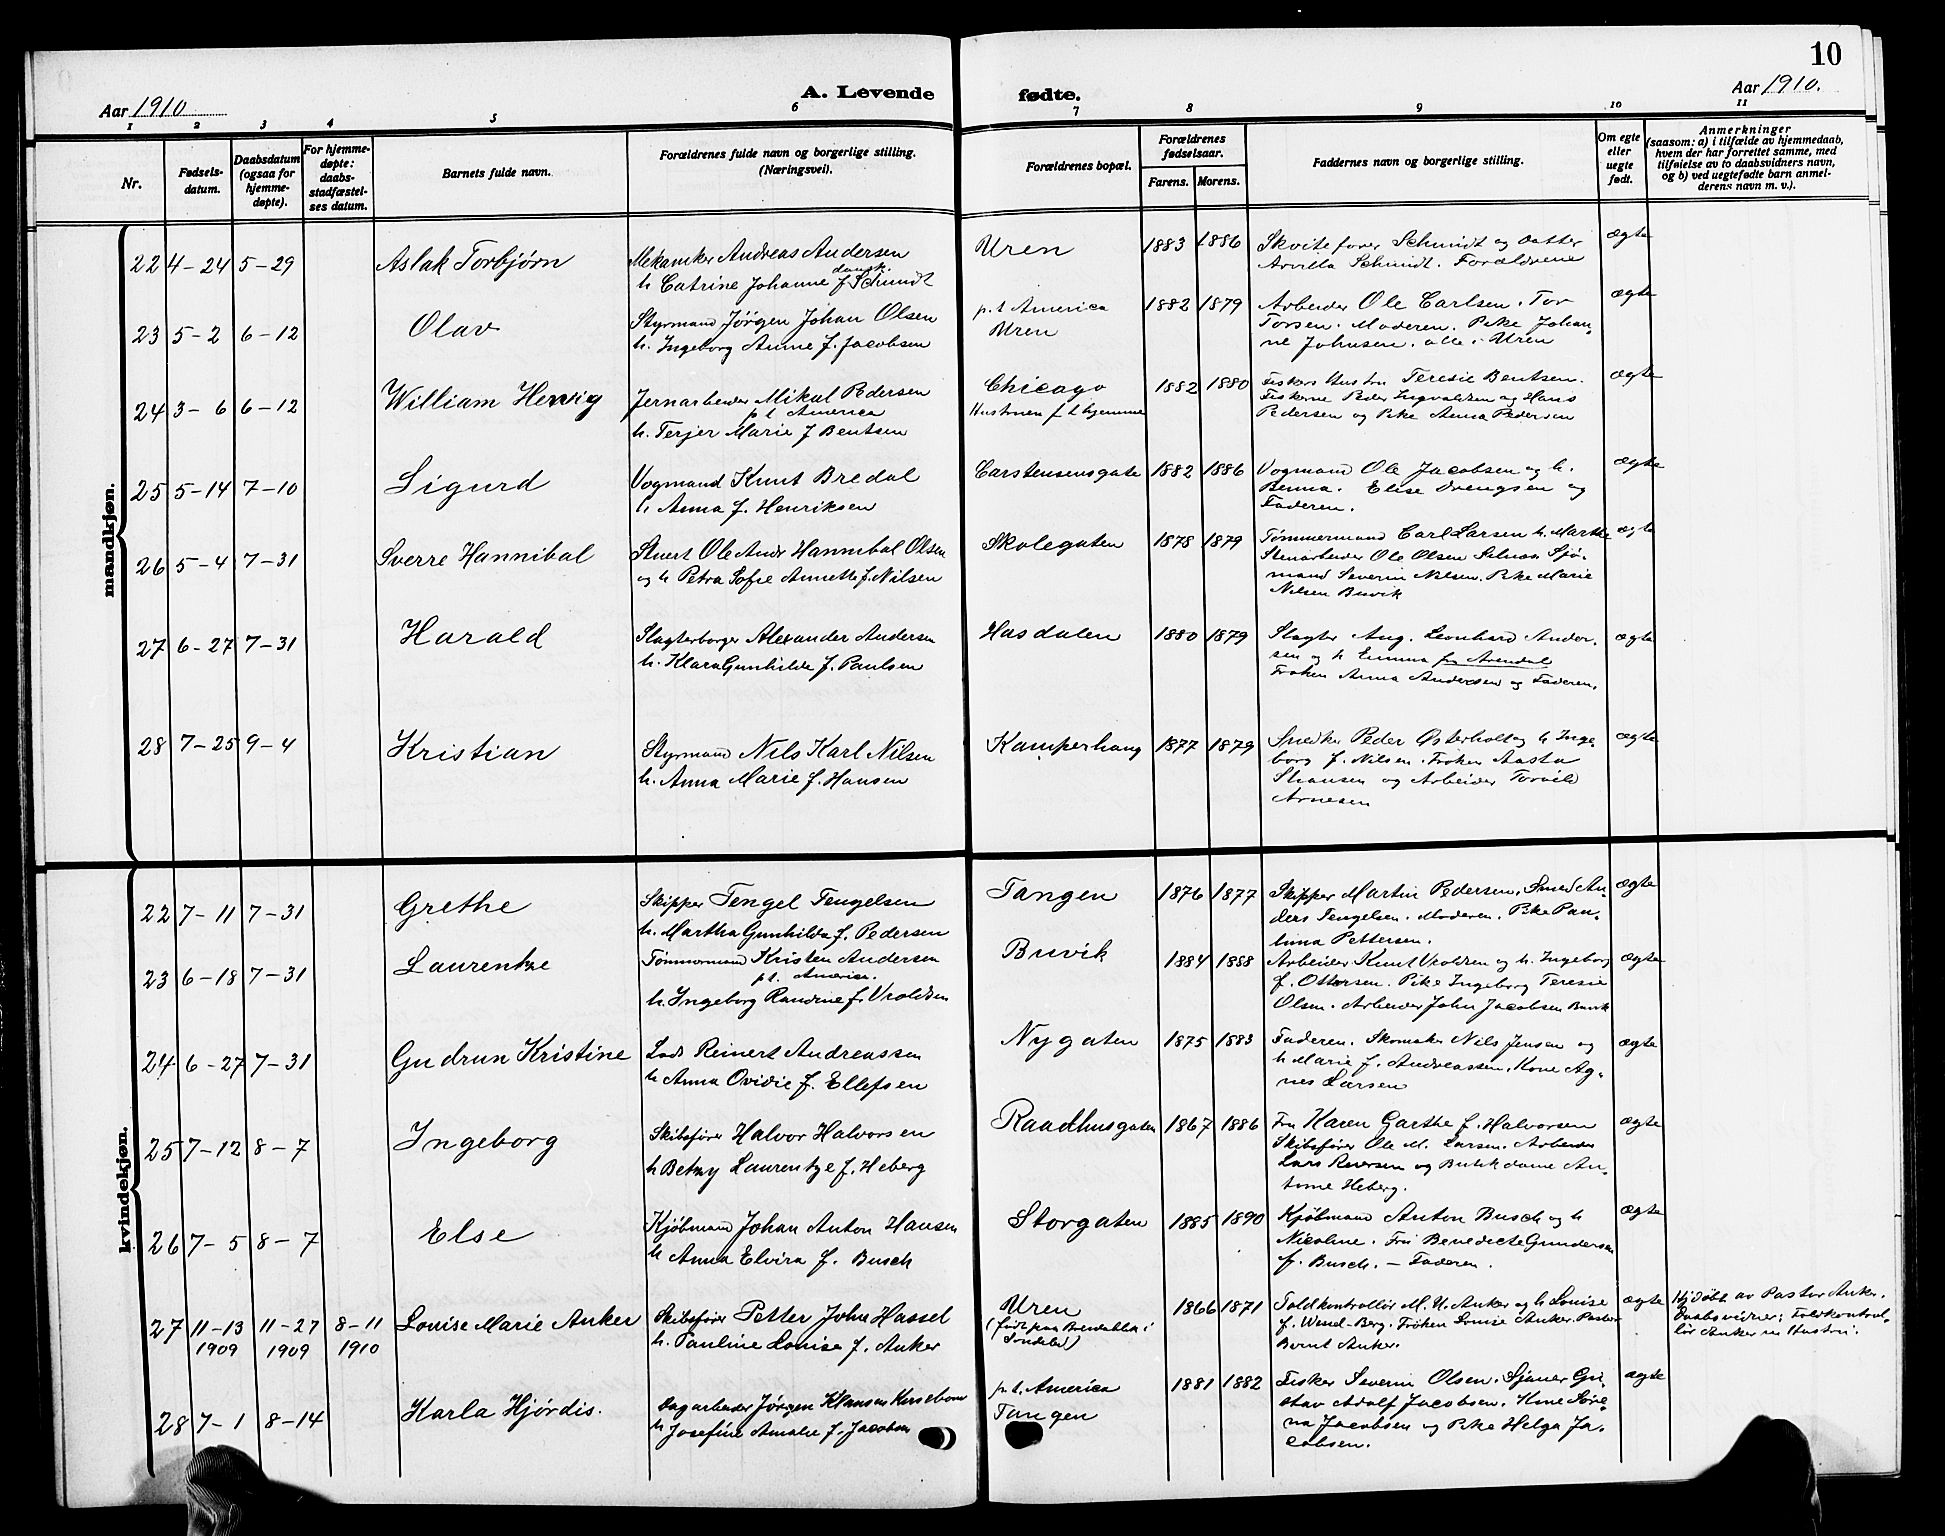 10
Aar 1910
A. Levende fødte.
Aar 1910.
1 2 3 4 5 6 7 8 9 10 11
Nr.
Fødsels-
datum.
Daabsdatum
(ogsaa for
hjemme-
døpte).
For hjemme-
døpte:
daabs-
stadfæstel-
ses datum.
Barnets fulde navn.
Forældrenes fulde navn og borgerlige stilling.
(Næringsvei).
Forældrenes bopæl.
Forældrenes
fødselsaar.
Farens. Morens.
Faddernes navn og borgerlige stilling.
Om egte
eller
uegte
født.
Anmerkninger
(saasom: a) i tilfælde av hjemmedaab,
hvem der har forrettet samme, med
tilføielse av to daabsvidners navn,
og b) ved uegtefødte barn anmel-
derens navn m. v.).
mandkjøn.
22 4-24 5-29 Aslak Torbjørn
Mekaniker Andreas Andersen
dansk.
h. Catrine Johanne f. Schmidt
Uren 1883 1886
Schmidt og datter
Schmidt. Forældrene
ægte
23 5-2 6-12 Olav
Styrmand Jørgen Johan Olsen
h. Ingeborg Anne f. Jacobsen
p.t. America
Uren
1882 1879
Arbeider Ole Carlsen. Tor
Torsen. Moderen. Pike Johan-
ne Johnsen. alle i Uren
ægte
24 3-6 6-12 William Henvig
Jernarbeider Mikal Pedersen
p.t. America
h. Terjer Marie f Bentsen
Chicago
Hustruen p.t. hjemme
1882 1880
Fiskers Hustru Teresie Bentsen.
Fiskerne Peder Ingvaldsen og Hans
Pedersen og Pike Anna Pedersen
ægte
25 5-14 7-10 Sigurd
Vogmand Knut Bredal
h Anna f. Henriksen
Carstensensgate 1882 1886
Vogmand Ole Jacobsen og h.
Benna. Elise Drengsen og
Faderen.
ægte
26 5-4 7-31 Sverre Hannibal
Stuert Ole Andr Hannibal Olsen
og h Petra Sofie Annette f. Nilsen
Skolegaten 1878 1879
Tømmermand Carl Larsen h. Marthe
Stenarbeider Ole Olsen Sjø-
mand Severin Nilsen. Pike Marie
Nilsen Buvik
ægte
27 6-27 7-31 Harald
Slagterborger Alexander Andersen
h. Klara Gunhilde f. Paulsen
Hasdalen 1880 1879
Slagter Aug. Leonhard Ander-
sen og h Emma fra Arendal
Frøken Anna Andersen og Faderen.
ægte
28 7-25 9-4 Kristian
Styrmand Nils Karl Nilsen
h. Anna Marie f. Hansen
Kamperhaug 1877 1879
Snedker Peder Østerholt og h Inge-
borg f. Nilsen. Frøken Aasta
og Arbeider Torvild
Arnesen
ægte
kvindekjøn.
22 7-11 7-31 Grethe
Skipper Tengel Tengelsen
h. Martha Gunhilda f. Pedersen
Tangen 1876 1877
Skipper Martin Pedersen. Smed An-
ders Tengelsen. Moderen. Pike Pau-
lina Pettersen.
ægte
23 6-18 7-31 Laurentze
Tømmermand Kristen Andersen
p.t. America.
h. Ingeborg Randine f. Vroldsen
Buvik 1884 1888
Arbeider Knut Vroldsen og h. Ingeborg
f. Ottersen. Pike Ingeborg Teresie
Olsen. Arbeider John Jacobsen Buvik
ægte
24 6-27 7-31 Gudrun Kristine
Lods Reinert Andreassen
h Anna Ovidie f. Ellefsen
Nygaten 1875 1883
Faderen. Skomaker Nils Jensen og
h Marie f. Andreassen. Kone Ag-
nes Larsen
ægte
25 7-12 8-7 Ingeborg
Skibsfører Halvor Halvorsen
h Betzy Laurentze f. Heberg
Raadhusgaten 1867 1886
Fru Karen Garthe f. Halvorsen
Skibsfører Ole M. Larsen. Arbeider
Lars Reiersen og Butikdame An-
tonie Heberg.
ægte
26 7-5 8-7 Else
Kjøbmand Johan Anton Hansen
h Anna Elvira f. Busch
Storgaten 1885 1890
Kjøbmand Anton Busch og h
Nicoline. Fru Benedicte Gundersen
f. Busch. - Faderen.
ægte
27 11-13 11-27 8-11 Louise Marie Anker
1909 1909 1910
Skibsfører Petter John Hassel
h. Pauline Louise f. Anker
Uren
(født paa i
Søndeled)
1866 1871
Toldkontrollør M. U. Anker og h Louise
f. Wend-Berg. Frøken Louise Anker. Pastor
Bernt Anker.
ægte
Hjdøbt av Pastor Anker.
Daabsvidner: Toldkontrol-
lør Anker m Hustru.
28 7-1 8-14 Karla Hjørdis.
Dagarbeider Jørgen Klausen Kirsebom
h Josefine Amalie f. Jacobsen
p.t. America
Tangen
1881 1882
Fisker Severin Olsen. Sjøner Gu-
stav Adolf Jacobsen. Kone Søre-
na Jacobsen og Pike Helga Ja-
cobsen.
ægte